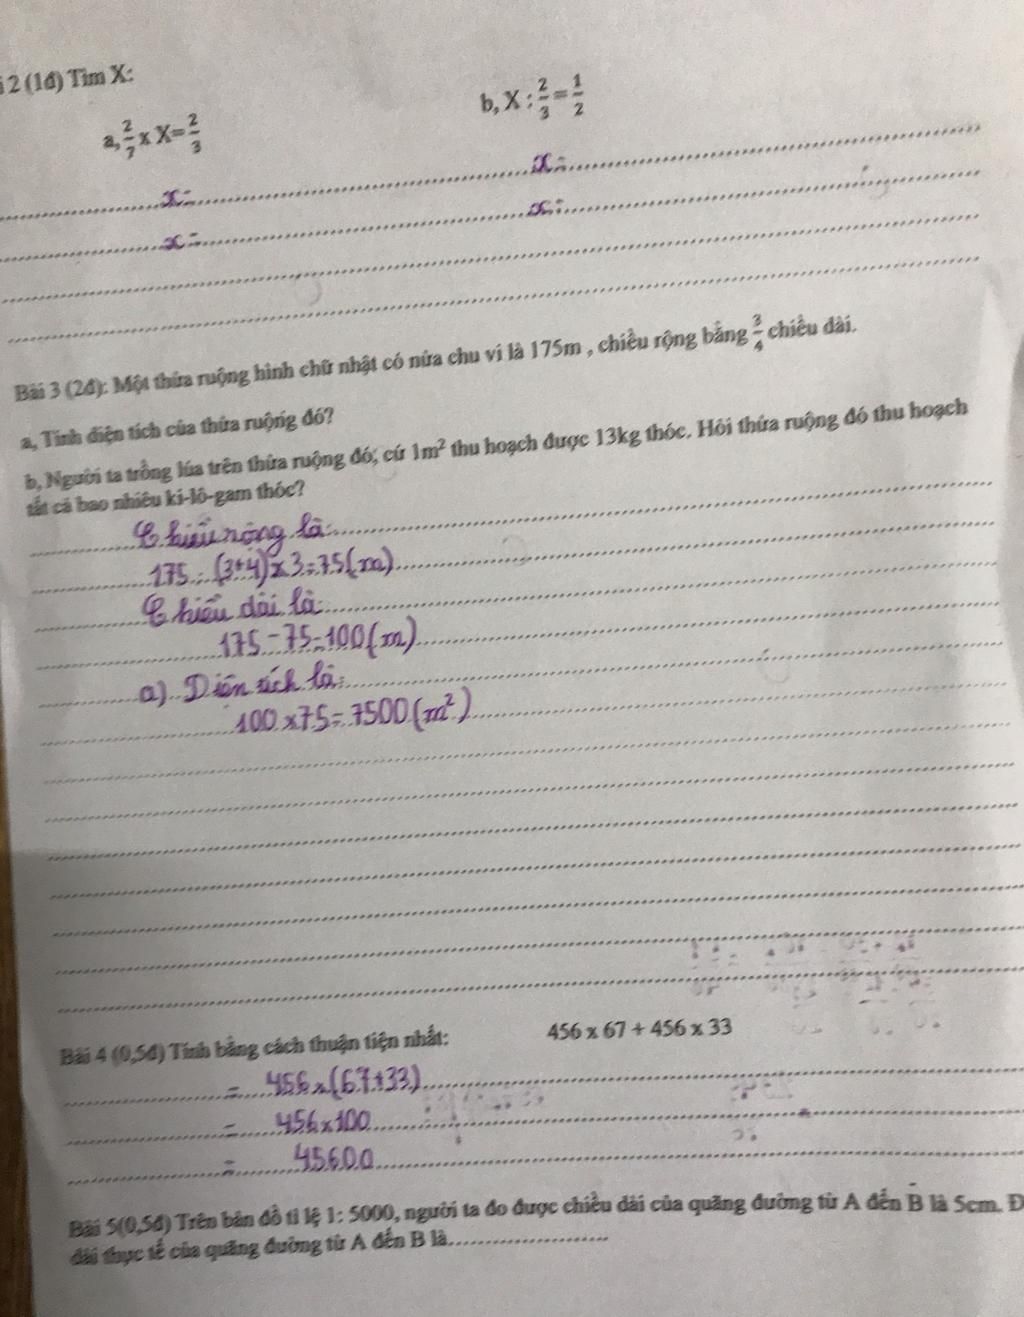 i 2 (1đ) Tìm X:
a, 2/7 x X= 2/3
b, X : 2/3 = 1/2
x=
x=
x=
x=
Bài 3 (2đ): Một thửa ruộng hình chữ nhật có nửa chu vi là 175m , chiều rộng bằng 3/4 chiều dài.
a, Tính diện tích của thửa ruộng đó?
b, Người ta trồng lúa trên thửa ruộng đó, cứ 1m² thu hoạch được 13kg thóc. Hỏi thửa ruộng đó thu hoạch
tất cả bao nhiêu ki-lô-gam thóc?
Chiều rộng là:
175 : (3+4) x 3 = 75(m)
Chiều dài là:
175 - 75 = 100(m)
a) Diện tích là:
100 x 75 = 7500 (m²)
Bài 4 (0,5đ) Tính bằng cách thuận tiện nhất: 456 x 67 + 456 x 33
= 456 x (67+33)
= 456 x 100
= 45600
Bài 5(0,5đ) Trên bản đồ tỉ lệ 1: 5000, người ta đo được chiều dài của quãng đường từ A đến B là 5cm. Đ
dài thực tế của quãng đường từ A đến B là....................